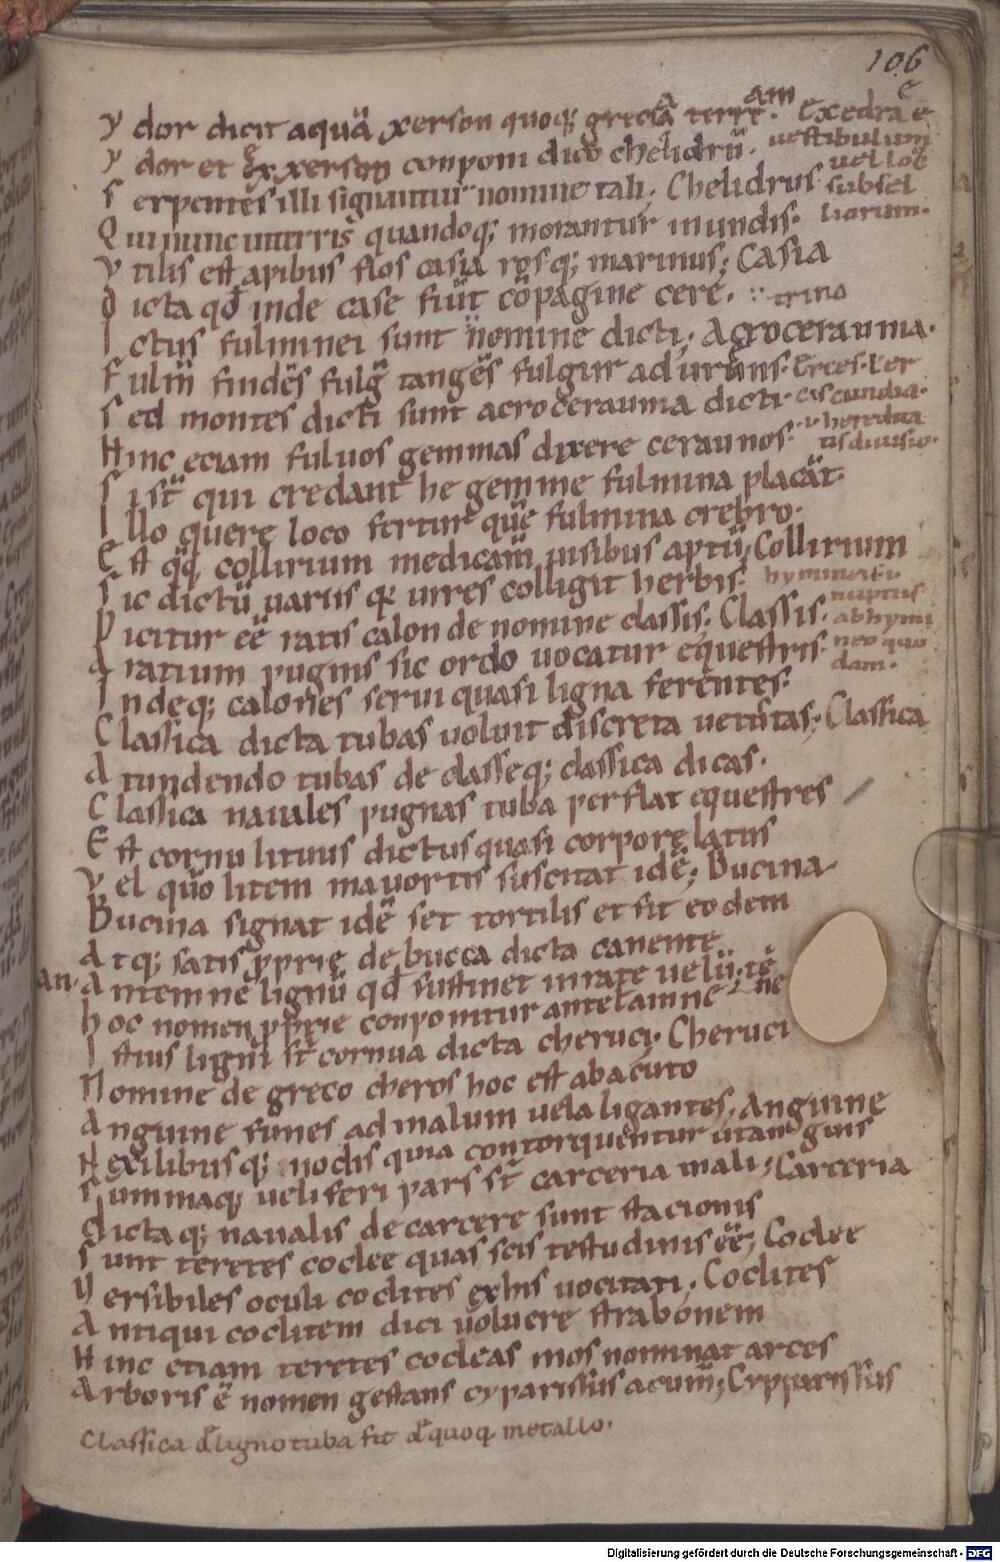 106
Y dor dicit aquā xerson quoq; grecia terrę. am Exedra ē
Y dor et ex xerson componi dico chelidrū. vestibulum
S erpentes illi signantur nomine tali. Chelidrus vel loc̄ subsel
Q ui nunc in terris quandoq; morantur in undis. liorum.
V tilis est apibus flos casia rosq; marinus; Casia
D icta qđ inde case fiūt cōpagine cere. trino
I ctus fulminei sunt nomine dicti; Acroceraunia.
F ulm̄ findēs fulgᷣ tangēs fulgur adurens. Erces. ł er
S ed montes dicti sunt acroceraunia dicti. ciscundia. heredita
H inc eciam fuluos gemmas dixere ceraunos. tis diuisio.
S ī st̄ qui credant he gemme fulmina placāt.
I llo querę loco fertur quē fulmina crebro.
E st qq̄ collirium medicam̄ uisibus aptū; Collirium
S ic dictū uariis q uires colligit herbis. hyminei in
D icitur eē ratis calon de nomine classis; Classis. nuptiis ab hymi
A ratium pugnis sic ordo uocatur equestris. neo quo
I ndeq; calones serui quasi ligna ferentes. dam.
C lassica dicta tubas voluit discreta uetustas; Classica
A tundendo tubas de classeq; classica dicas.
C lassica nauales pugnas tuba perflat equestres
E st cornu lituus dictus quasi corporę latus
V el quo litem mauortis suscitat idē; Bucina
B ucina signat idē set tortilis et fit eodem
A tq; satis pprie de bucca dicta canente
an. A ntemnē lignū qđ sustinet in rate uelū. tē
H oc nomen pprie conponitur ante ł amne ł ne
I stius ligni st̄ cornua dicta cheruci. Cheruci
N omine de greco cheros hoc est ab acuto
A nguine funes ad malum uela ligantes. Anguine
N exilibusq; nodis quia contorquentur ut anguis
S ummaq; ueliferi pars st̄ carceria mali; Carceria
D ictaq; naualis de carcere sunt stacionis
S unt teretes coclee quas scis testudinis eē; Coclee
V ersibiles oculi coclites exhis uocitati. Coclites
A ntiqui coclitem dici uoluere strabonem
H inc etiam teretes cocleas mos nominat arces
A rboris ē nomen gestans cyparissus acum̄; Cypparissus
Classica đ ligno tuba fit đ quoq metallo.
Digitalisierung gefördert durch die Deutsche Forschungsgemeinschaft - DFG